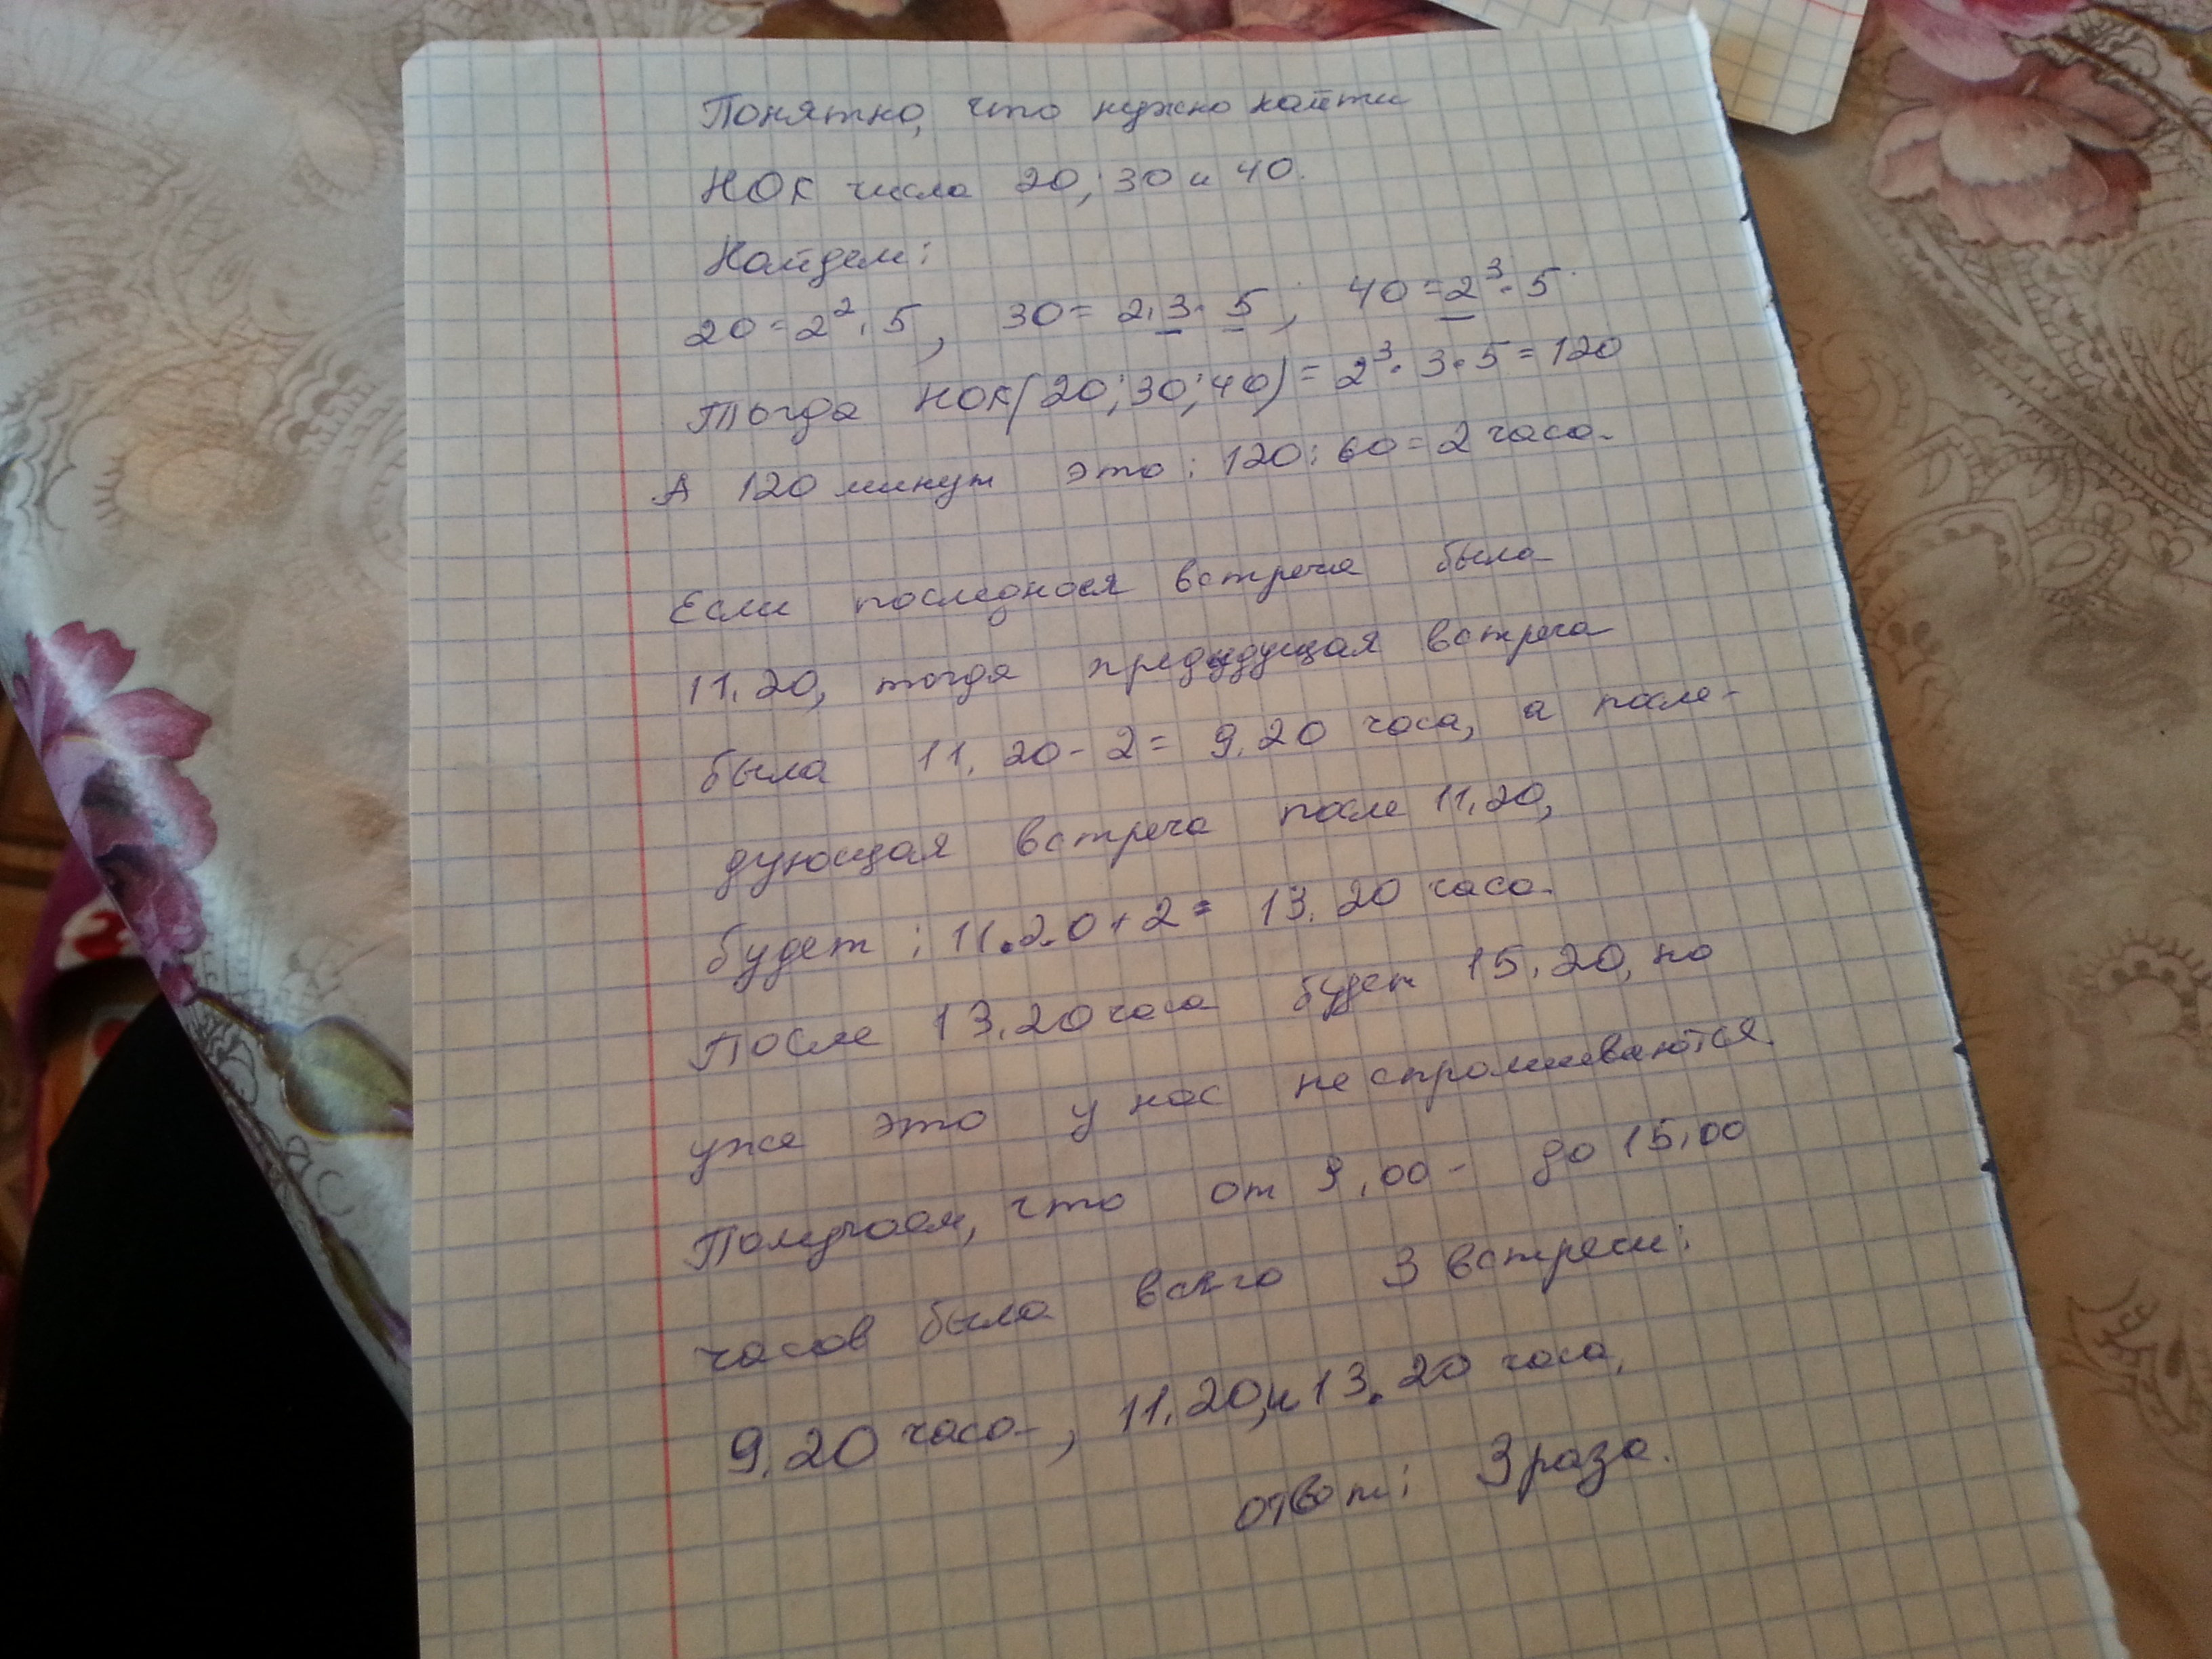 Понятно, что нужно найти
НОК числа 20; 30 и 40.
Найдем:
20 = 2² · 5, 30 = 2 · 3 · 5; 40 = 2³ · 5.
Тогда НОК(20; 30; 40) = 2³ · 3 · 5 = 120
А 120 минут это: 120 : 60 = 2 часа.
Если последняя встреча была
11.20, тогда предыдущая встреча
была 11.20 - 2 = 9.20 часа, а после-
дующая встреча после 11.20,
будет: 11.20 + 2 = 13.20 часа.
После 13.20 часа будет 15.20, но
уже это у нас не спрошиваются.
Получаем, что от 9.00 - до 15.00
часов была всего 3 встречи:
9.20 часа, 11.20, и 13.20 часа,
ответ: 3 раза.